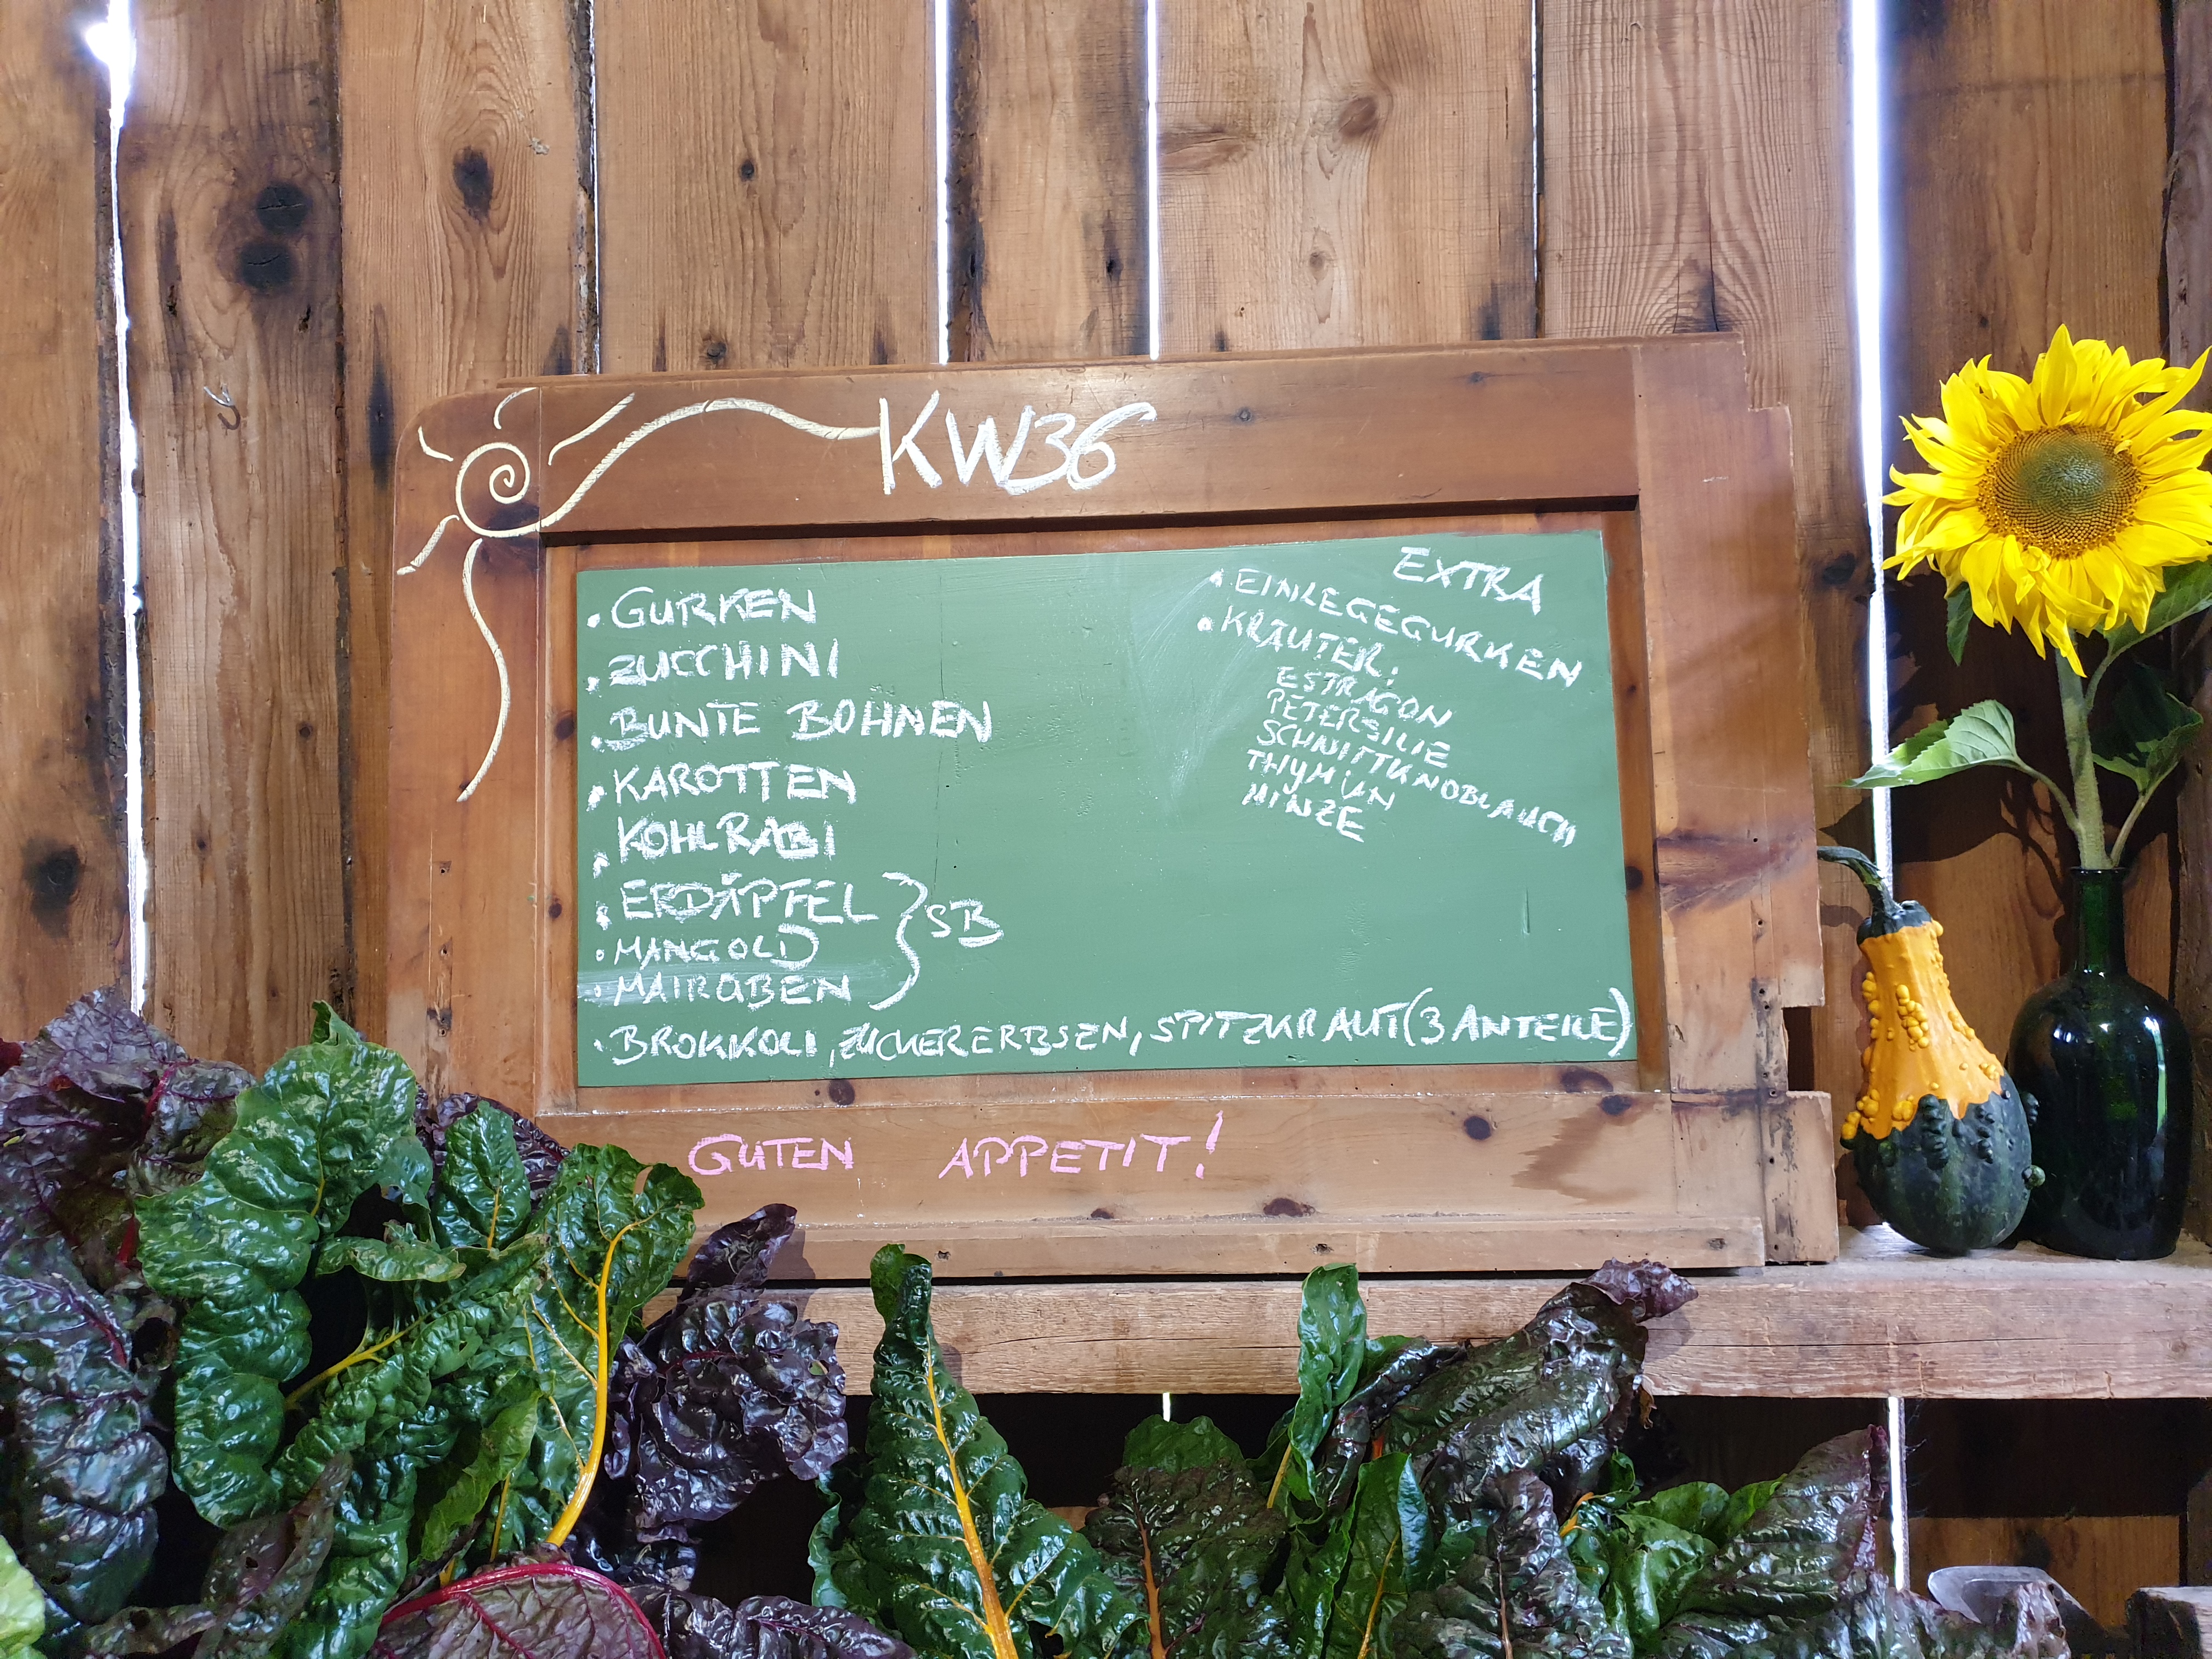 KW36
• GURKEN
• ZUCCHINI
• BUNTE BOHNEN
• KAROTTEN
• KOHLRABI
• ERDÄPFEL
• MANGOLD
• MAIRÜBEN
} SB
• BROKKOLI, ZUCKERERBSEN, SPITZKRAUT (3 ANTEILE)
EXTRA
• EINLEGEGURKEN
• KRÄUTER:
ESTRAGON
PETERSILIE
SCHNITTKNOBLAUCH
THYMIAN
MINZE
GUTEN APPETIT!